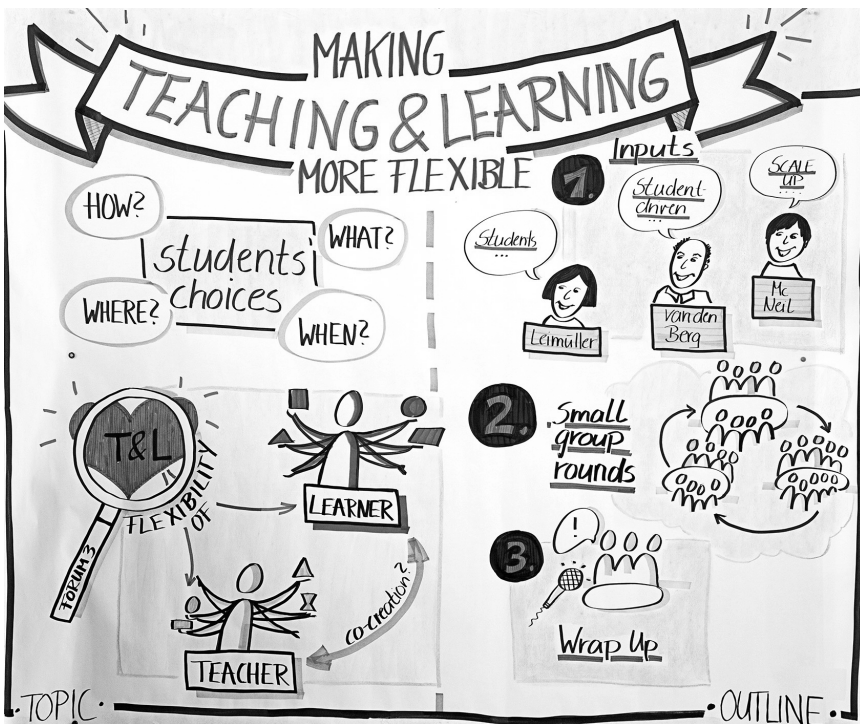 MAKING
TEACHING & LEARNING
MORE FLEXIBLE
HOW?
WHAT?
students'
choices
WHERE?
WHEN?
T&L
FLEXIBILITY
OF
FORUM 3
LEARNER
TEACHER
CO-CREATION?
TOPIC
1.
Inputs
Students
...
Leimüller
Student-
...
van den
Berg
SCALE
UP
....
Mc
Neil
2.
Small
group
rounds
3.
!
Wrap Up
OUTLINE